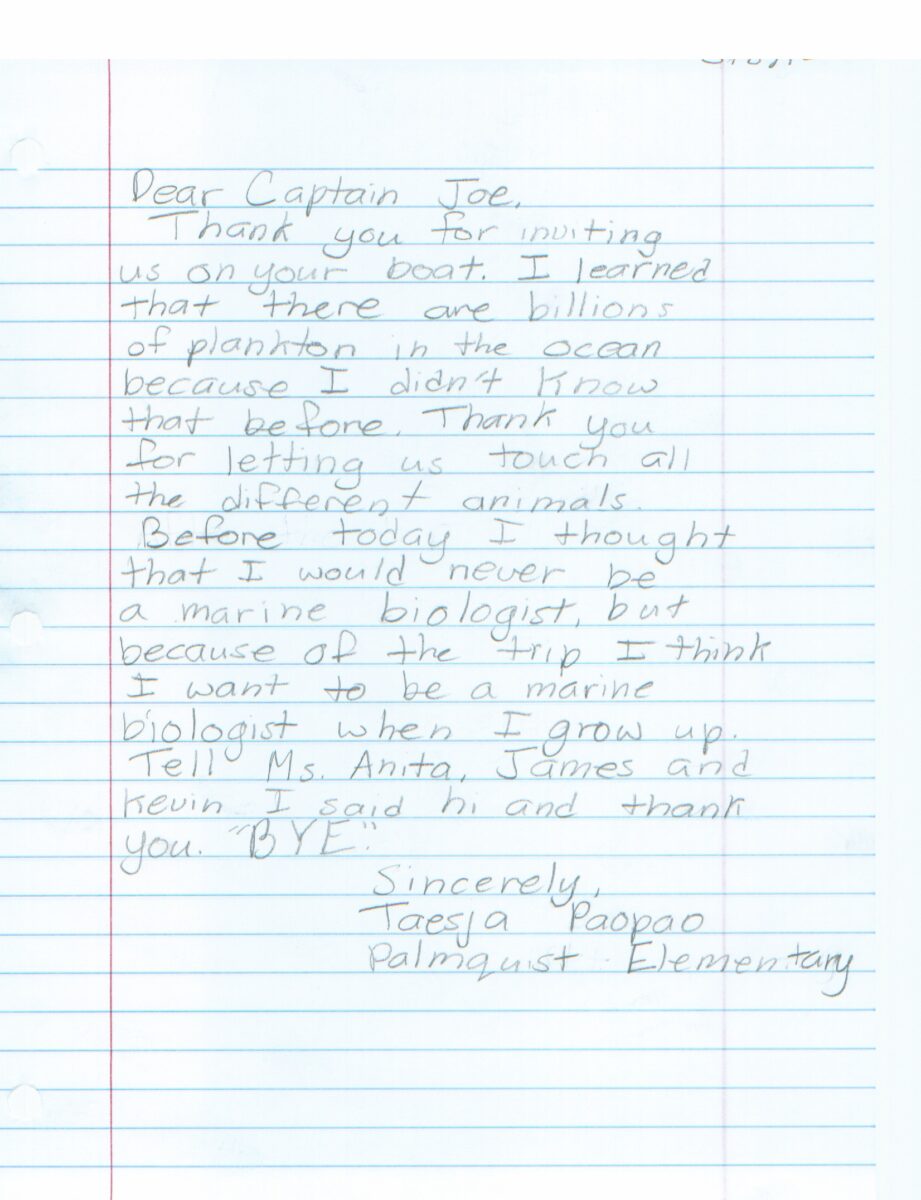 Dear Captain Joe,
Thank you for inviting
us on your boat. I learned
that there are billions
of plankton in the ocean
because I didn't know
that before. Thank you
for letting us touch all
the different animals.
Before today I thought
that I would never be
a marine biologist, but
because of the trip I think
I want to be a marine
biologist when I grow up.
Tell Ms. Anita, James and
Kevin I said hi and thank
you. "BYE".
Sincerely,
Taesja Paopao
Palmquist Elementary